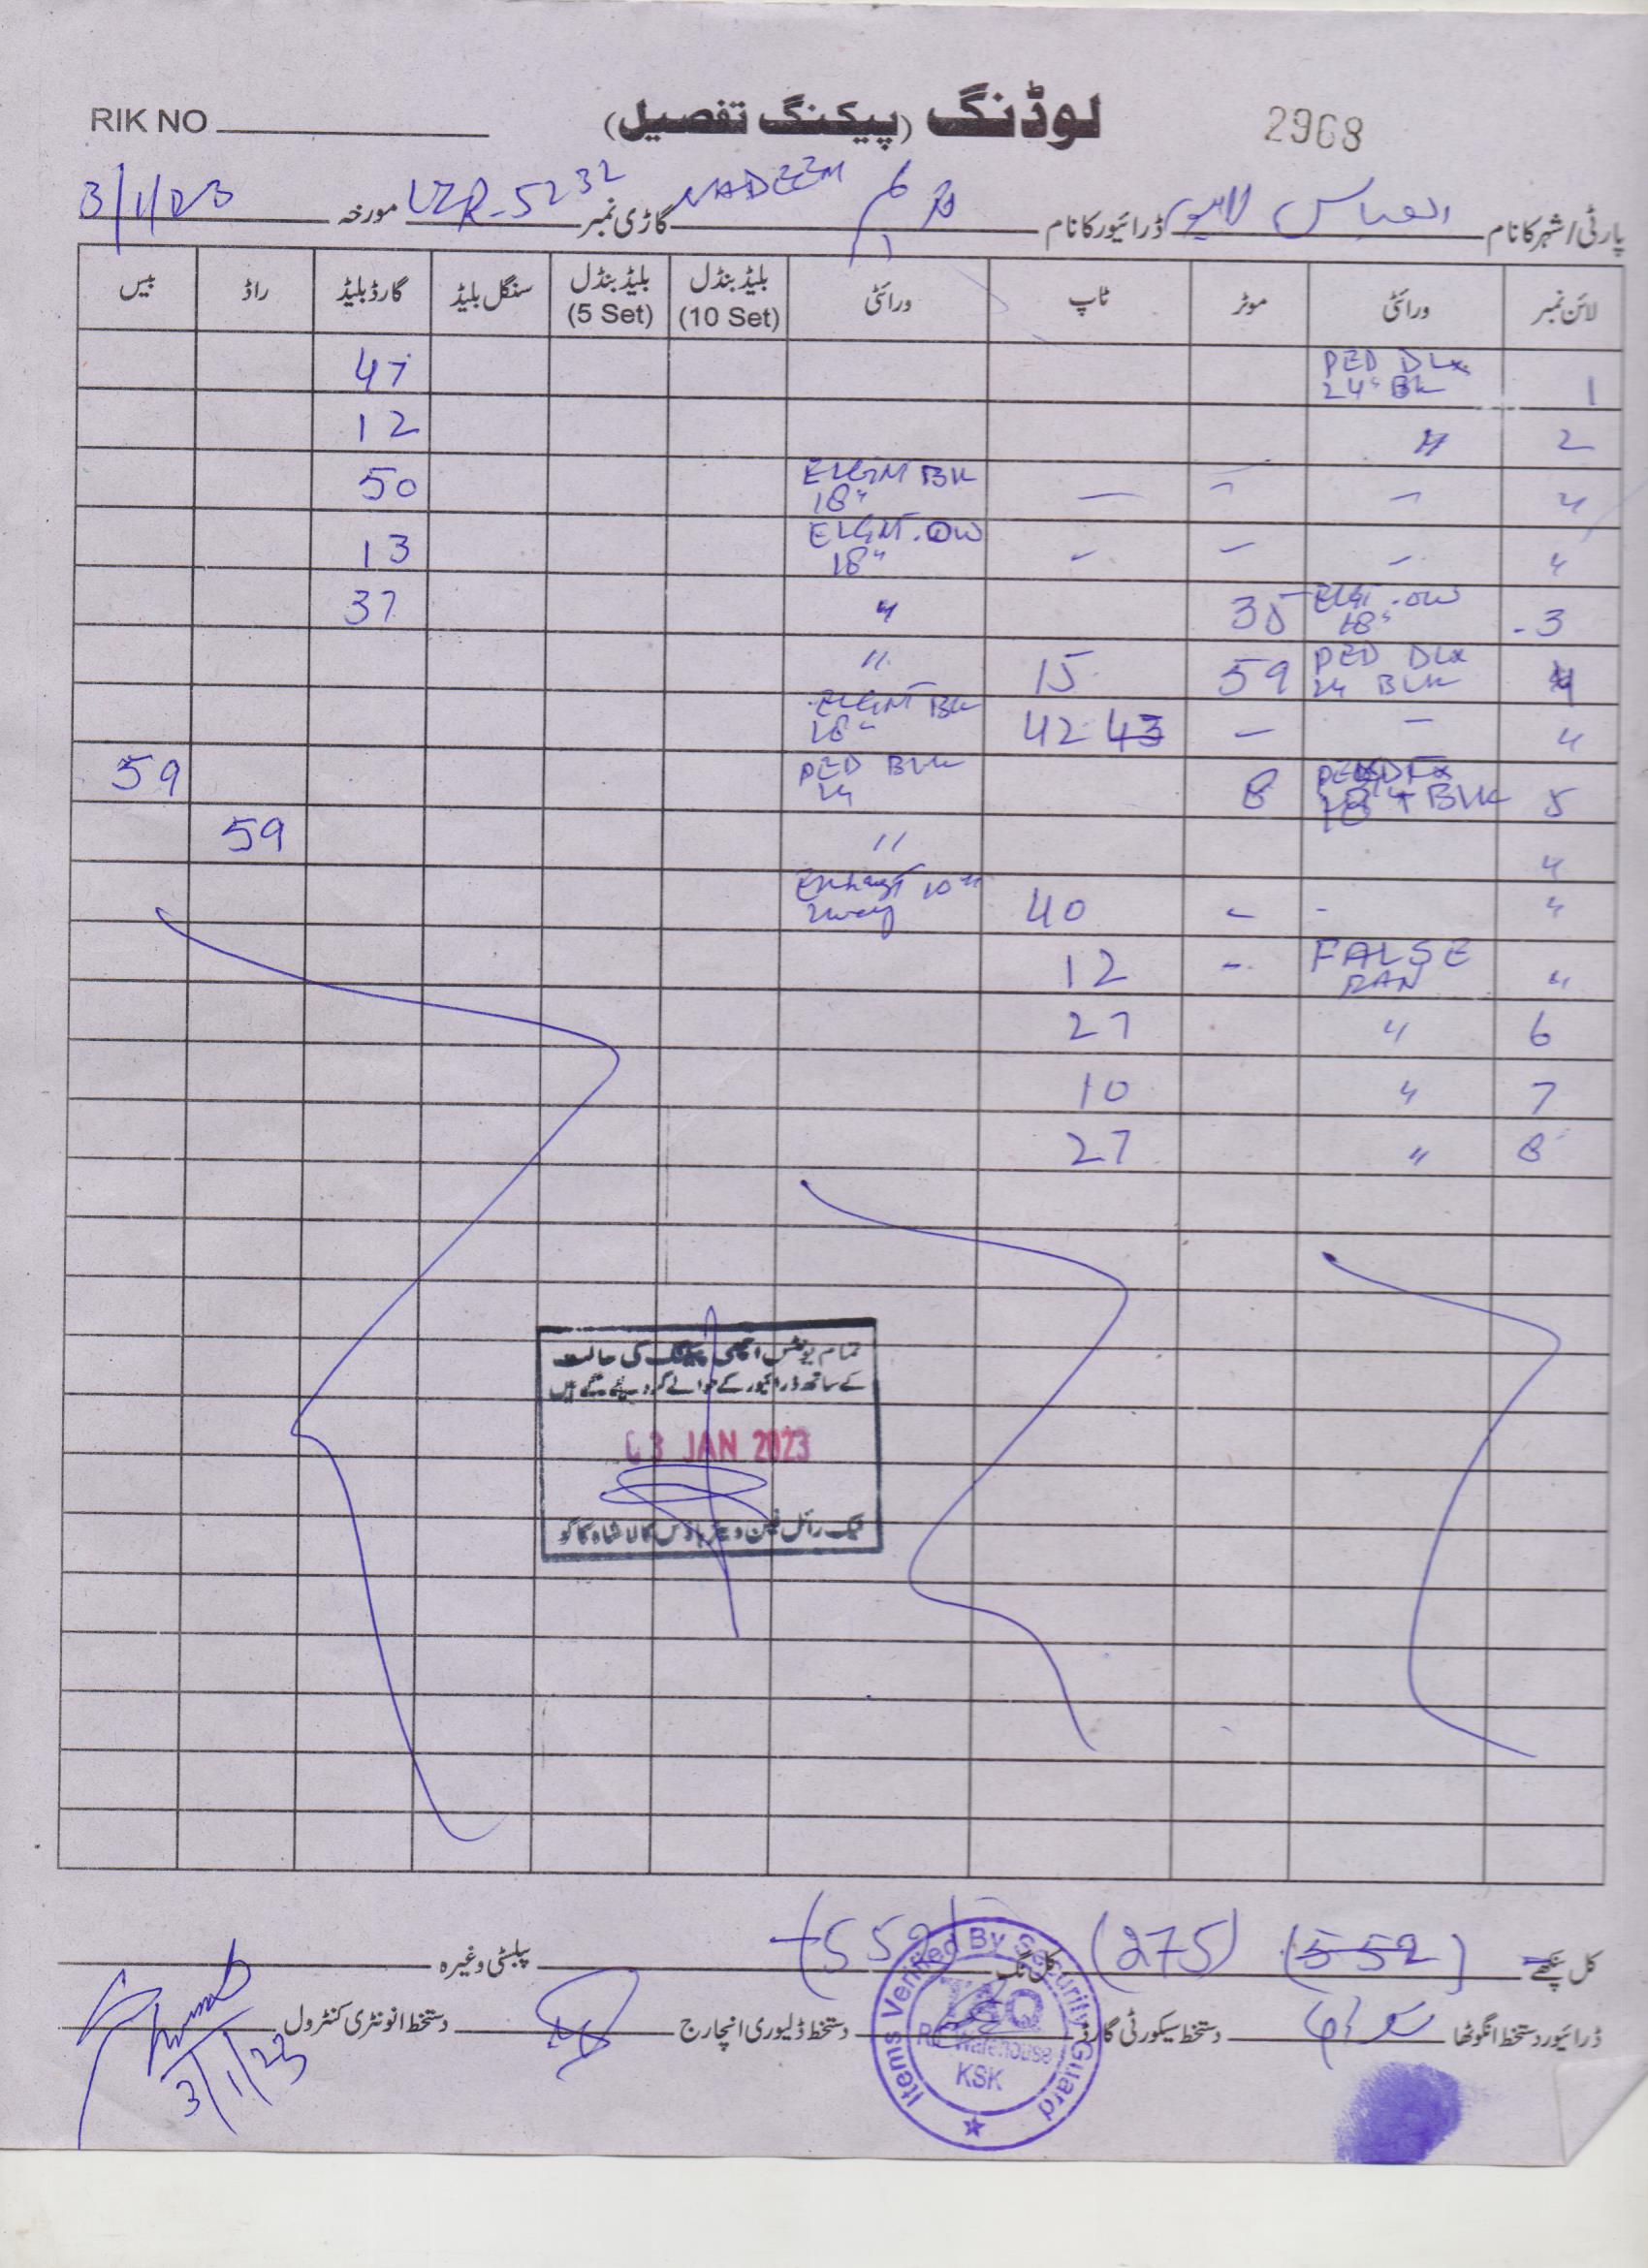 RIK NO
لوڈنگ (پیکنگ تفصیل)
2968
پارٹی/شہر کا نام العباس لاہور ڈرائیور کا نام NADEEM گاڑی نمبر 5232 مورخہ 3/1/23
لائن نمبر ورائٹی موٹر ٹاپ ورائٹی بلیڈ بنڈل (10 Set) بلیڈ بنڈل (5 Set) سنگل بلیڈ گارڈ بلیڈ راڈ بیس
1 PED DLx 24" Bk 47
2 " 12
" - - - ELGNT Bk 18" 50
" - - - ELGNT. OW 18" 13
3 ELGT. OW 18" 35 " 37
4 PED DLx 24 BLK 59 15 "
" - - 42 43 ELGNT BK 18"
5 18" BLK 8 PED BLK 24 59
" " 59
" - - 40 Exhaust 10" 2way
" FALSE FAN - 12
6 " 27
7 " 10
8 " 27
تمام یونٹس اچھی پیکنگ کی حالت
کے ساتھ ڈرائیور کے حوالے کر دیئے گئے ہیں
03 JAN 2023
ٹیک رائل فین ویئر ہاؤس کالا شاہ کاکو
کل پنکھے (552) (275) کل نگ (552) پبلسٹی وغیرہ
ڈرائیور دستخط انگوٹھا دستخط سیکورٹی گارڈ دستخط ڈلیوری انچارج دستخط انونٹری کنٹرول
3/1/23
Items Verified By Security Guard
Warehouse
KSK